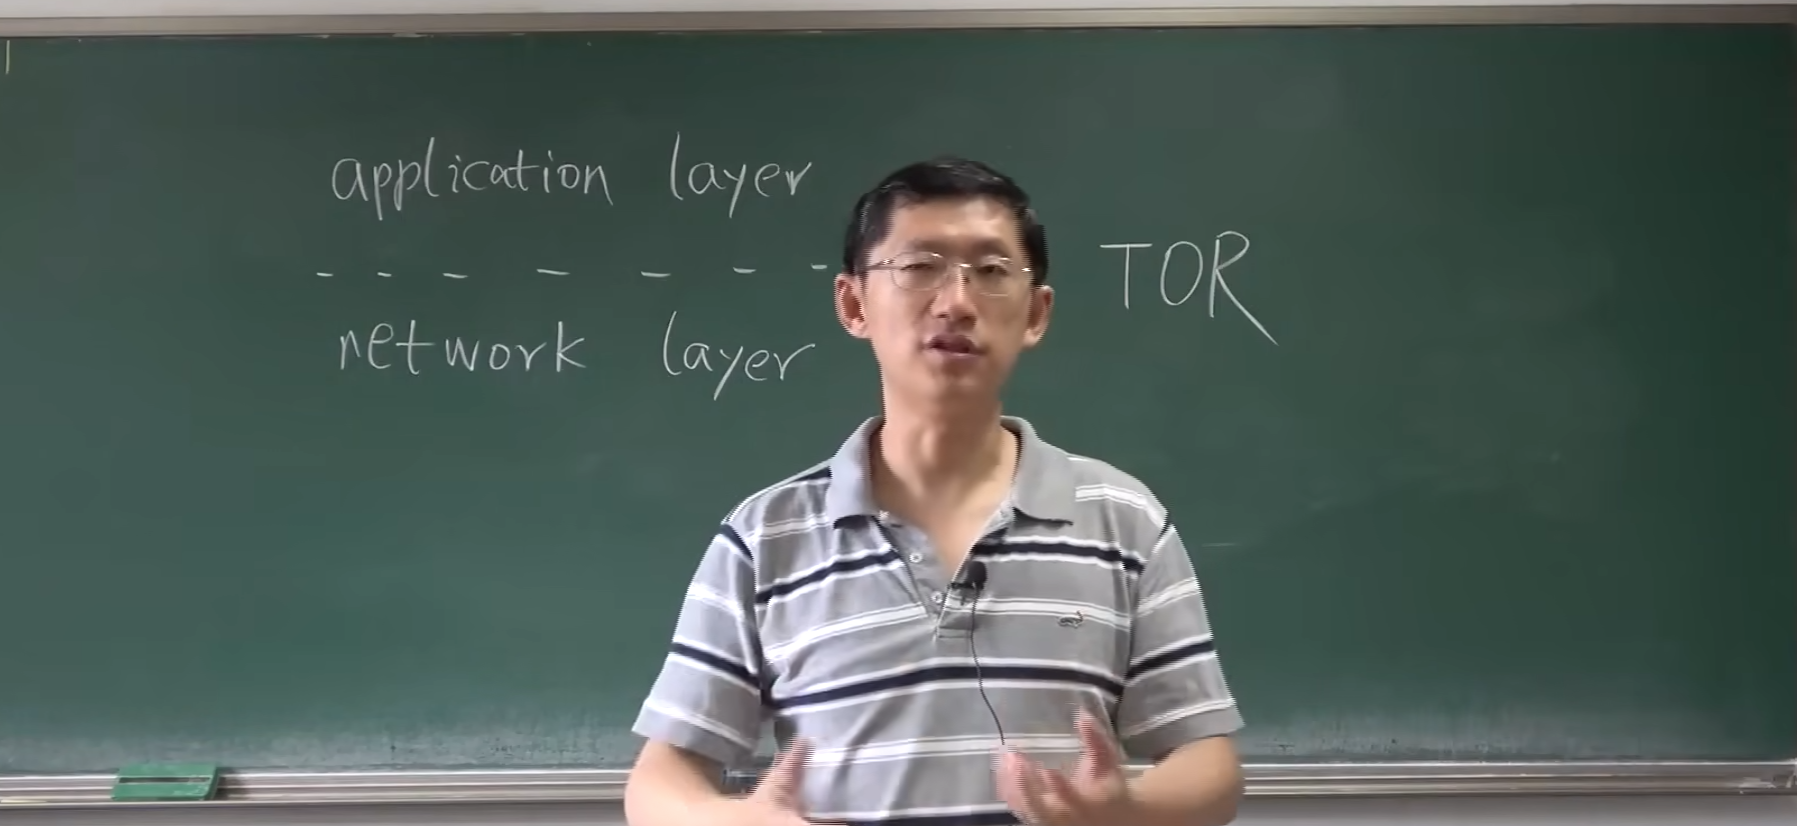 application layer
- - - - - - -
network layer
TOR